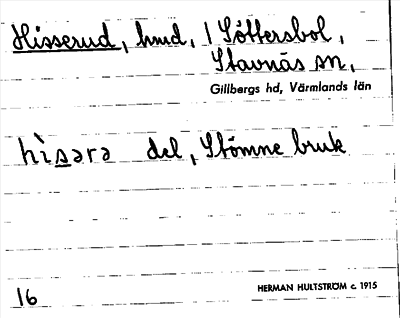 Hisserud, hmd, / Söttersbol,
Stavnäs sn,
Gillbergs hd, Värmlands län
hìsərə del, Stömne bruk
16
HERMAN HULTSTRÖM c. 1915